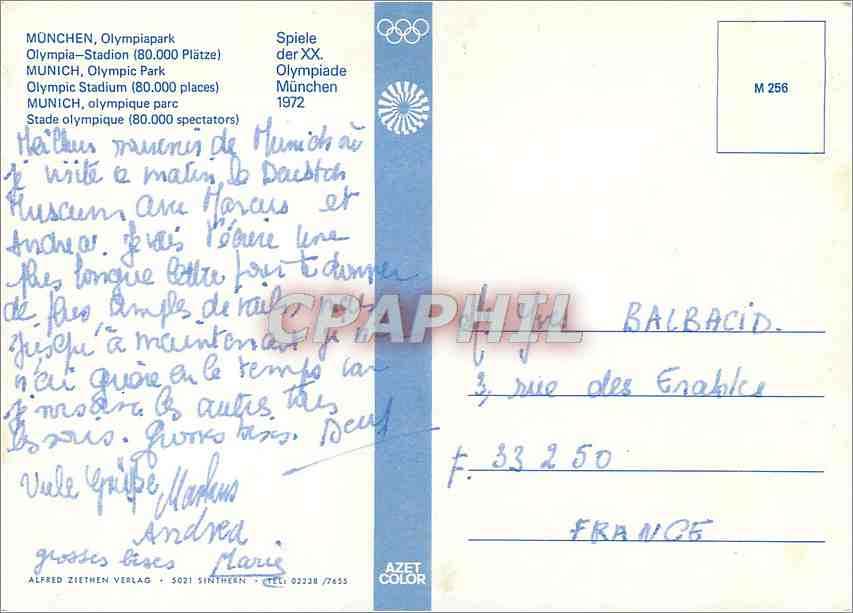 MÜNCHEN, Olympiapark
Olympia-Stadion (80.000 Plätze)
MUNICH, Olympic Park
Olympic Stadium (80.000 places)
MUNICH, olympique parc
Stade olympique (80.000 spectators)
Spiele
der XX.
Olympiade
München
1972
M 256
Meilleurs souvenirs de Munich où
je visite ce matin le
Museum avec Marcus et
Andrea. Je vais t'écrire une
plus longue lettre pour te donner
de plus amples détails mais
jusqu'à maintenant je
n'ai guère eu le temps car
les autres tous
les soirs. Grosses bises.
Viele Grüße Markus
Andrea
grosses bises Marie
CPAPHIL
BALBACID.
3, rue des Erables
F. 33 250
FRANCE
ALFRED ZIETHEN VERLAG • 5021 SINTHERN • TEL: 02238 /7655
AZET
COLOR